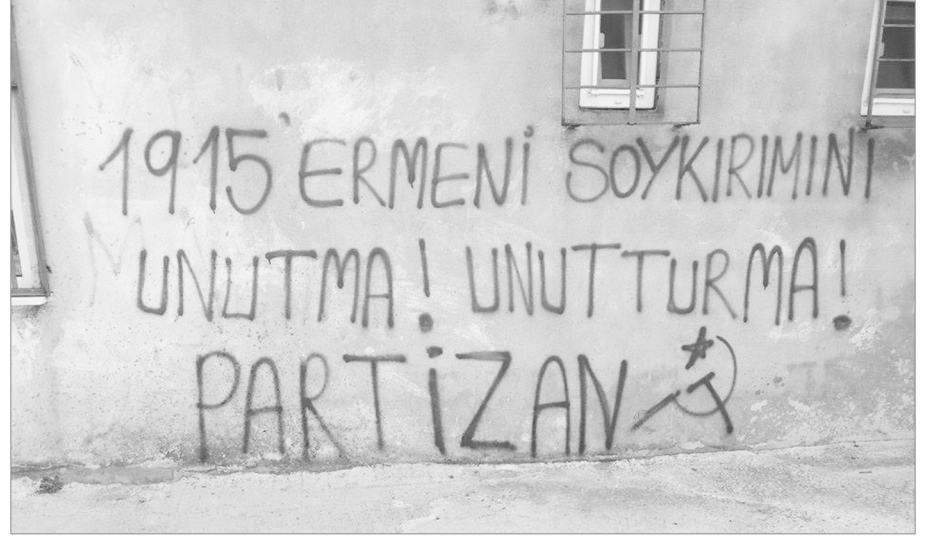 1915 ERMENİ SOYKIRIMINI
UNUTMA! UNUTTURMA!
PARTİZAN